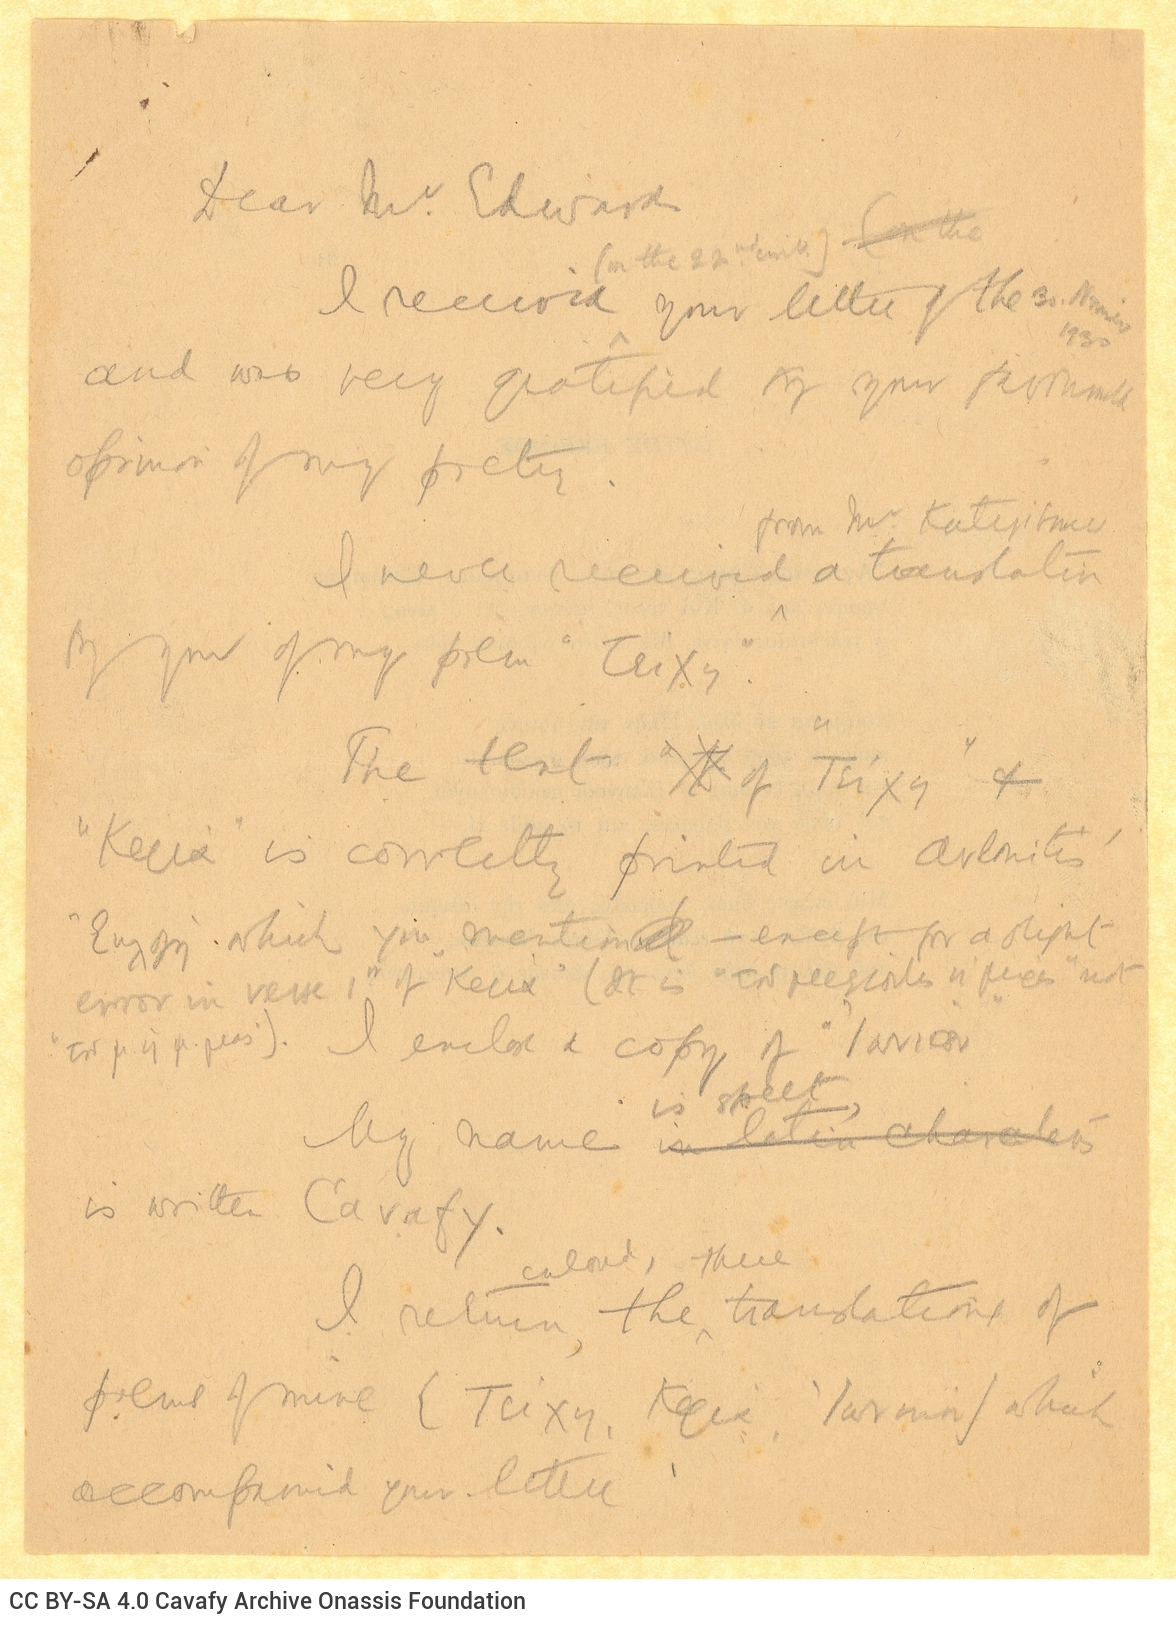 Dear Mr. Edwards
(on the 22nd inst.) (on the
I received your letter of the 30. November
1930
and was very gratified by your favourable
opinion of my poetry.
from Mr.
I never received a translation
by you of my poem "Τείχη".
The text of "Τείχη" &
"Κεριά" is correctly printed in Avlonitis'
which you mention — except for a slight
error in verse 1 of "Κεριά" (It is "τοῦ μέλλοντος ἡ μέρες" not
"τοῦ μ. ἡ μ. μας"). I enclose a copy of "Ἰωνικόν"
is spelt,
My name in latin characters
is written Cavafy.
enclosed, three
I return, the translations of
poems of mine (Τείχη, Κεριά, Ἰωνικόν) which
accompanied your letter
CC BY-SA 4.0 Cavafy Archive Onassis Foundation